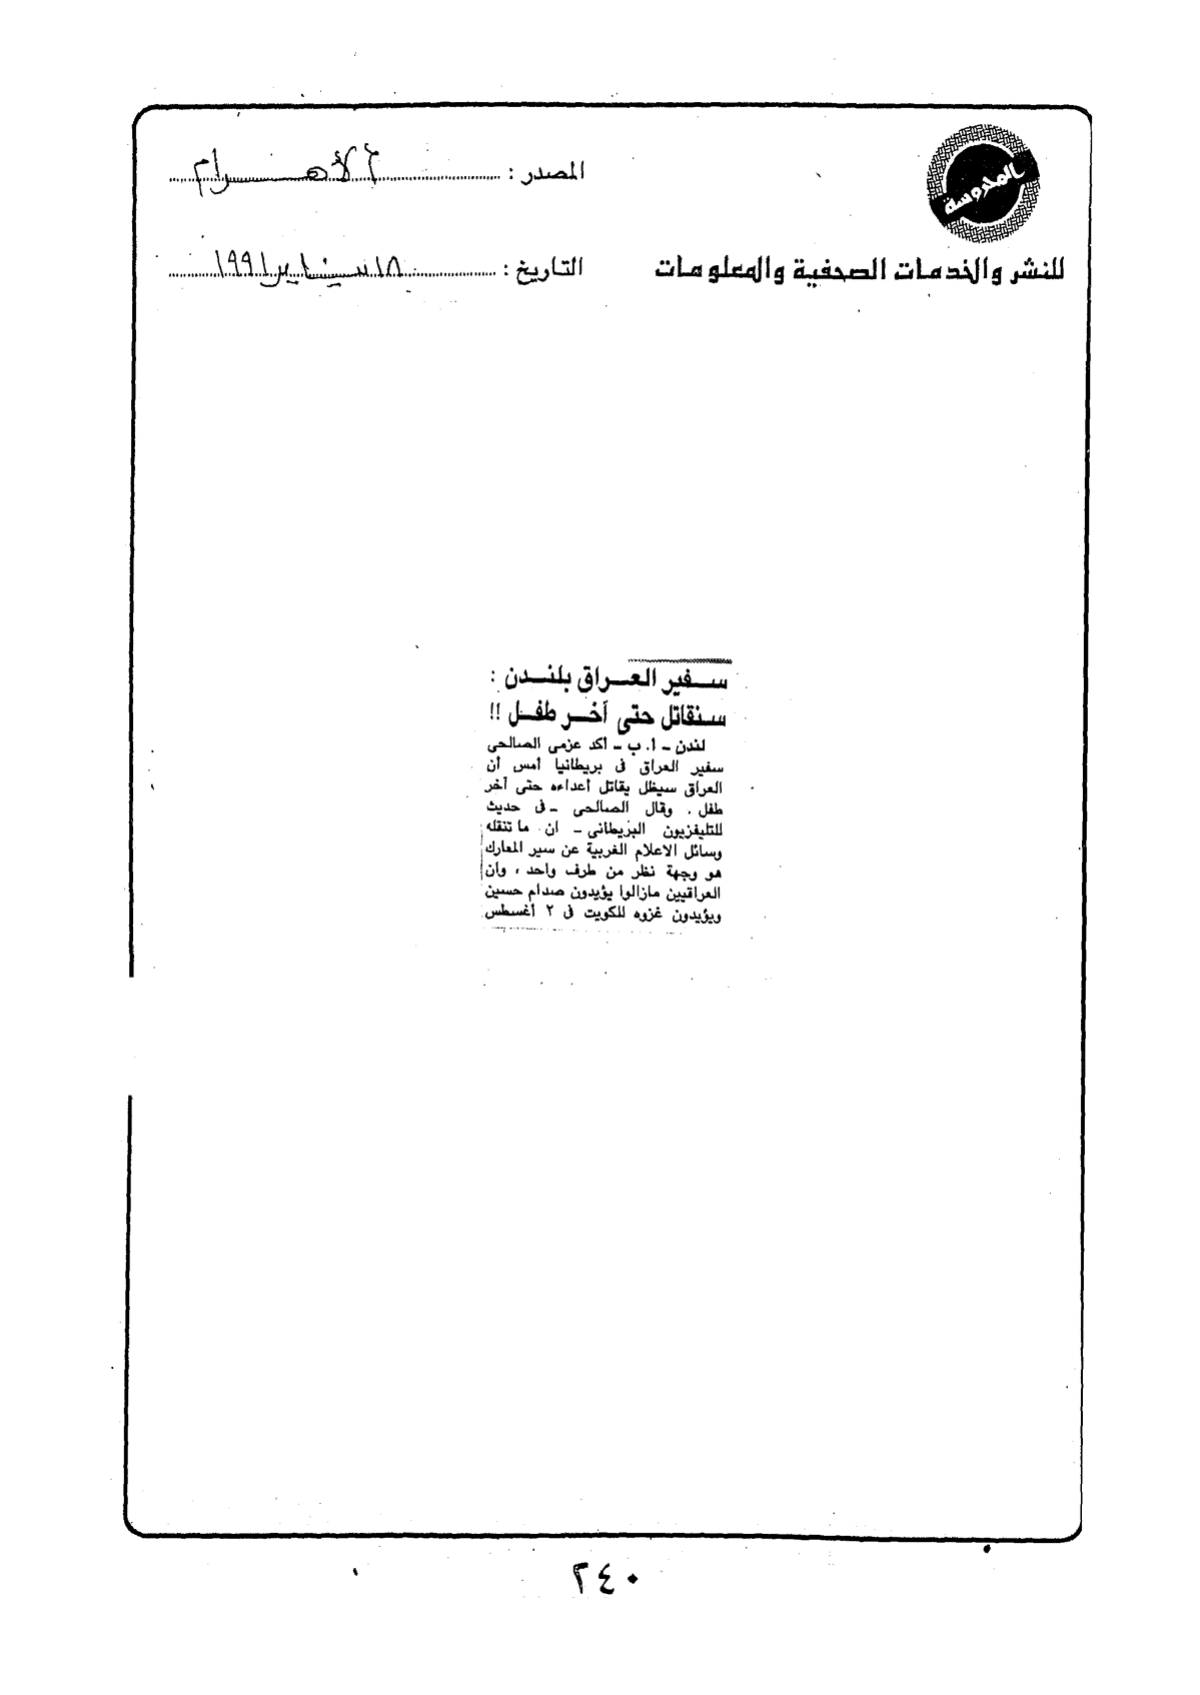 المحروسة
للنشر والخدمات الصحفية والمعلومات
المصدر : الأهرام
التاريخ : ١٨ يناير ١٩٩١
سفير العراق بلندن :
سنقاتل حتى آخر طفل !!
لندن - أ. ب - أكد عزمى الصالحى
سفير العراق فى بريطانيا أمس أن
العراق سيظل يقاتل أعداءه حتى آخر
طفل . وقال الصالحى - فى حديث
للتليفزيون البريطانى - ان ماتنقله
وسائل الاعلام الغربية عن سير المعارك
هو وجهة نظر من طرف واحد ، وأن
العراقيين مازالوا يؤيدون صدام حسين
ويؤيدون غزوه للكويت فى ٢ أغسطس
٢٤٠